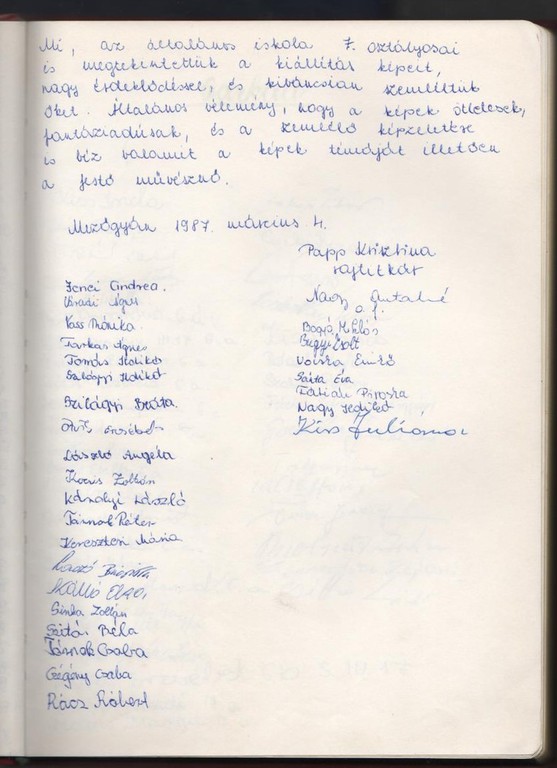 Mi, az általános iskola 7. osztályosai
is megtekintettük a kiállítás képeit,
nagy érdeklődéssel, és kiváncsian szemléltük
őket. Általános vélemény, hogy a képek ötletesek,
fantáziadúsak, és a szemlélő képzeletére
is bíz valamit a képek témáját illetően
a festő művésznő.
Mezőgyán 1987. március 4.
Papp Krisztina
rajtitkár
Jenei Andrea.
Váradi Ágnes
Vass Mónika.
Farkas Ágnes
Tamás Ildikó
Szilágyi Ildikó
Szilágyi Beáta.
Erzsébet
László Angéla
Kocsis Zoltán
Károlyi László
Tárnok Péter
Keresztesi Mária
Brigitta
Kálló
Sinka Zoltán
Gajtás Béla
Tárnok Csaba
Czégény Csaba
Rácz Róbert
Nagy Antalné
o.f.
Bagó Miklós
Bugyi Zsolt
Vajska Emikő
Sánta Éva
Fábián Piroska
Nagy Ildikó
Kiss Julianna